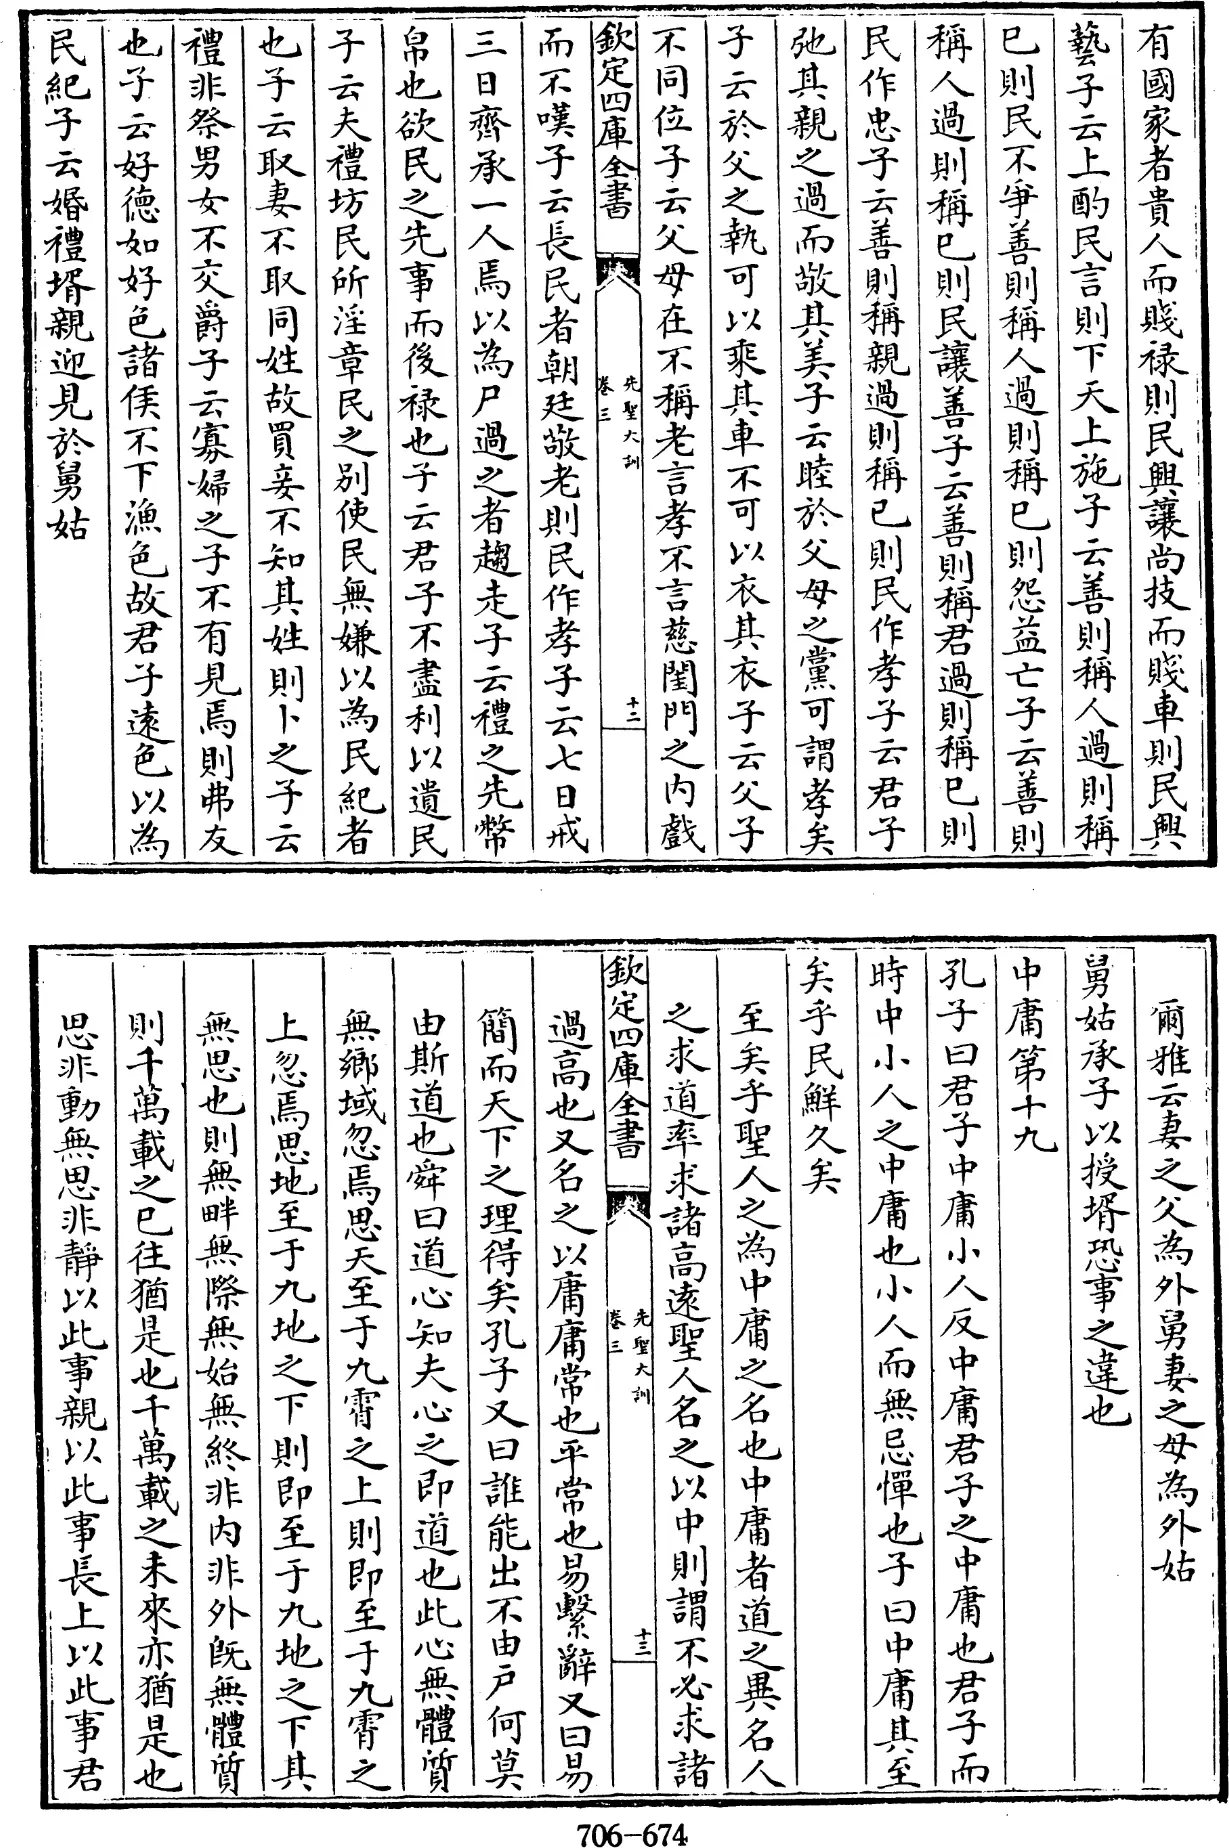 有國家者貴人而賤禄則民興讓尚技而賤車則民興
藝子云上酌民言則下天上施子云善則稱人過則稱
已則民不爭善則稱人過則稱已則怨益亡子云善則
稱人過則稱已則民讓善子云善則稱君過則稱已則
民作忠子云善則稱親過則稱已則民作孝子云君子
弛其親之過而敬其美子云睦於父母之黨可謂孝矣
子云於父之執可以乘其車不可以衣其衣子云父子
不同位子云父母在不稱老言孝不言慈閨門之内戲
欽定四庫全書
先聖大訓
卷三
十二
而不嘆子云長民者朝廷敬老則民作孝子云七日戒
三日齊承一人焉以為尸過之者趨走子云禮之先幣
帛也欲民之先事而後禄也子云君子不盡利以遺民
子云夫禮坊民所淫章民之别使民無嫌以為民紀者
也子云取妻不取同姓故買妾不知其姓則卜之子云
禮非祭男女不交爵子云寡婦之子不有見焉則弗友
也子云好德如好色諸侯不下漁色故君子遠色以為
民紀子云婚禮壻親迎見於舅姑
爾雅云妻之父為外舅妻之母為外姑
舅姑承子以授壻恐事之違也
中庸第十九
孔子曰君子中庸小人反中庸君子之中庸也君子而
時中小人之中庸也小人而無忌憚也子曰中庸其至
矣乎民鮮久矣
至矣乎聖人之為中庸之名也中庸者道之異名人
之求道率求諸高遠聖人名之以中則謂不必求諸
欽定四庫全書
先聖大訓
卷三
十三
過高也又名之以庸庸常也平常也易繫辭又曰易
簡而天下之理得矣孔子又曰誰能出不由户何莫
由斯道也舜曰道心知夫心之即道也此心無體質
無鄉域忽焉思天至于九霄之上則即至于九霄之
上忽焉思地至于九地之下則即至于九地之下其
無思也則無畔無際無始無終非内非外旣無體質
則千萬載之已往猶是也千萬載之未來亦猶是也
思非動無思非靜以此事親以此事長上以此事君
706-674